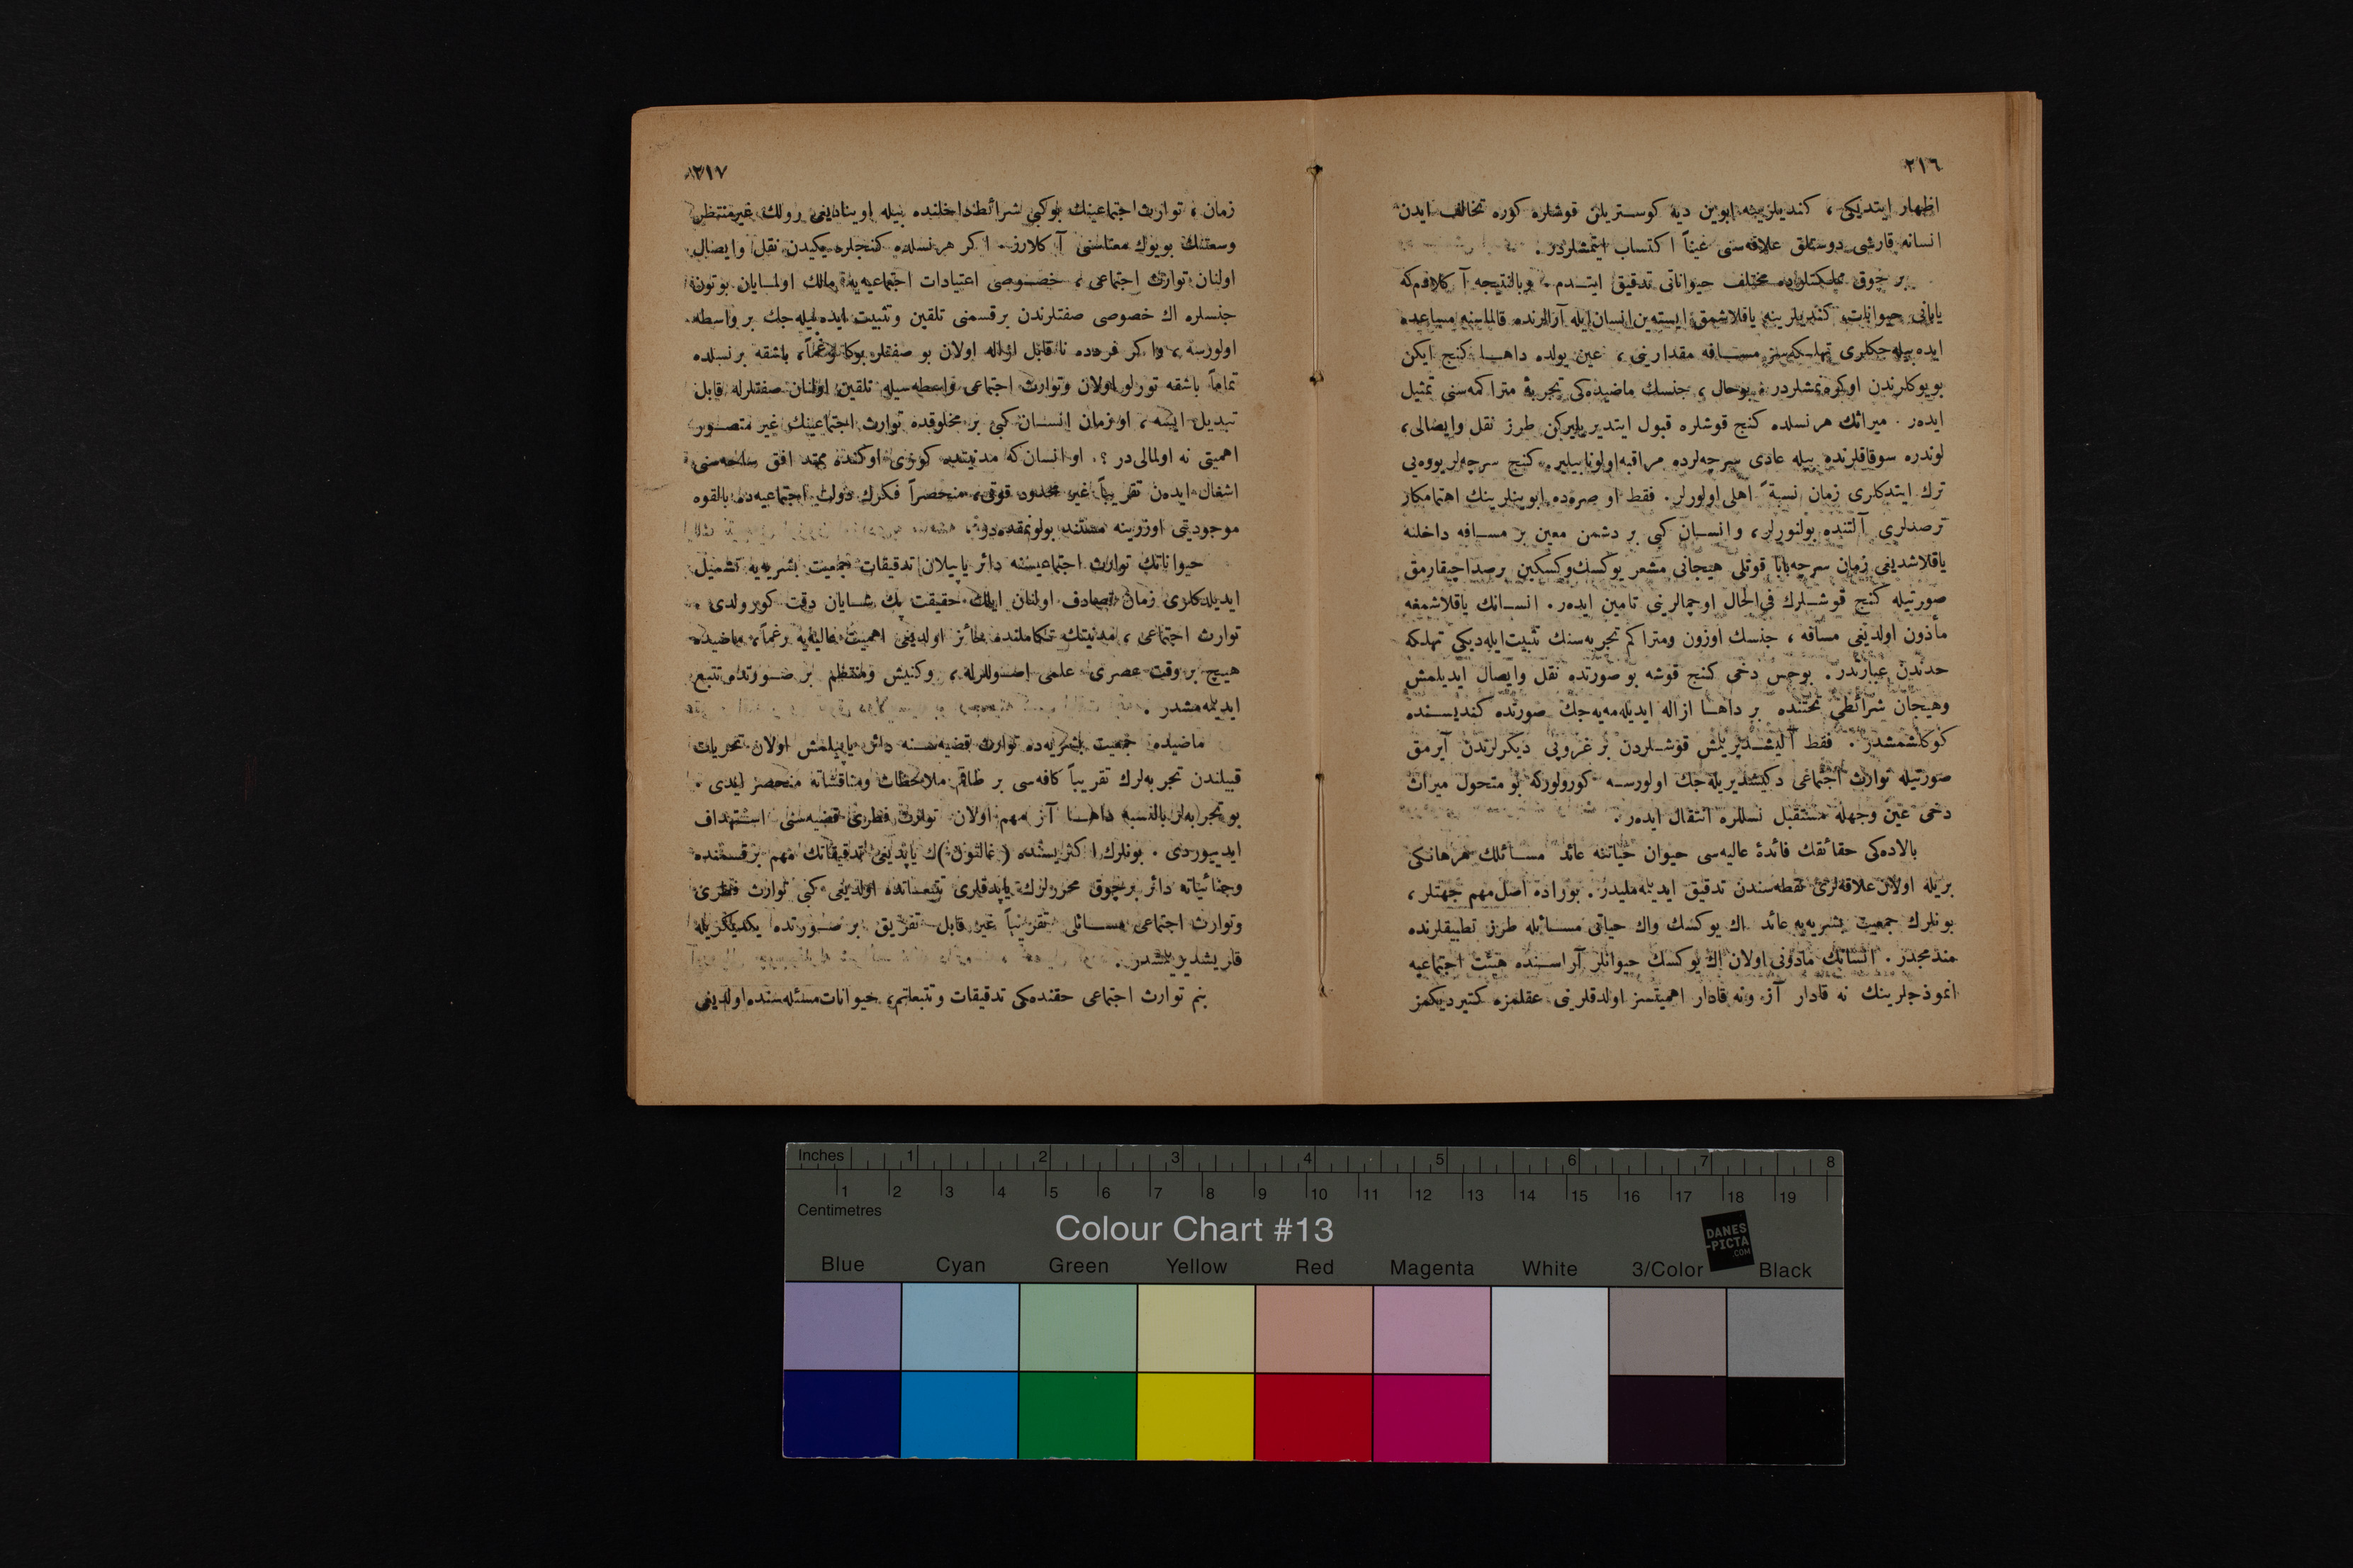 ٢١٦
اظهار ایتدیکی ، کندیلرینه ابوین دیه کوستریلن قوشلره کوره تخالف ایدن
انسانه قارشی دوستلق علاقه‌سنی عیناً اکتساب ایتمشلردر .
بر چوق مملکتلرده مختلف حیواناتی تدقیق ایتدم . وبالنتیجه آکلادم‌که
یابانی حیوانات، کندیلرینه یاقلاشمق ایسته‌ین انسان ایله آرالرنده قالماسنه مساعده
ایده‌بیله‌جکلری تهلکه‌سز مسافه مقدارینی ، عین یولده داها کنج ایکن
بویوکلرندن اوکره‌نمشلردر . بوحال ، جنسك ماضیده‌کی تجربهٔ متراکمه‌سنی تمثیل
ایدەر . میراثك هر نسلده کنج قوشلره قبول ایتدیریلیرکن طرز نقل وایصالی،
لوندره سوقاقلرنده بیله عادی سرچه‌لرده مراقبه اولونابیلیر. کنج سرچه‌لر یووه‌یی
ترك ایتدکلری زمان نسبةً اهلی اولورلر. فقط او صره‌ده ابوینلرینك اهتمامکار
ترصدلری آلتنده بولنورلر، وانسان کبی بر دشمن معین بر مسافه داخلنه
یاقلاشدیغی زمان سرچه‌بابا قوتلی هیجانی مشعر یوکسك‌وکسکین برصدا چیقارمق
صورتیله کنج قوشلرك فی‌الحال اوچمالرینی تامین ایدەر. انسانك یاقلاشمغه
مأذون اولدیغی مسافه ، جنسك اوزون ومتراکم تجربه‌سنك تثبیت ایله‌دیکی تهلکه
حدندن عبارتدر. بوحس دخی کنج قوشه بو صورتده نقل وایصال ایدیلمش
وهیجان شرائطی تحتنده بر داها ازاله ایدیله‌مه‌یه‌جك صورتده کندیسنده
کوکلشمشدر . فقط آلیشدیریلمش قوشلردن بر غروپی دیکرلرندن آیرمق
صورتیله توارث اجتماعی دکیشدیریله‌جك اولورسه کورولورکه بو متحول میراث
دخی عین وجهله مستقبل نسللره انتقال ایدەر .
بالاده‌کی حقائقك فائدهٔ عالیه‌سی حیوان حیاتنه عائد مسائلك هرهانکی
بریله اولان علاقه‌لری نقطه‌سندن تدقیق ایدیله‌ملیدر. بوراده اصل مهم جهتلر ،
بونلرك جمعیت بشریه‌یه عائد اك یوکسك واك حیاتی مسائله طرز تطبیقلرنده
مندمجدر . انسانك مادونی اولان اك یوکسك حیوانلر آراسنده هیئت اجتماعیه
انموذجلرینك نه قادار آز ونه قادار اهمیتسز اولدقلرینی عقلمزه کتیردیکمز
٢١٧
زمان ، توارث اجتماعینك بوکبی شرائط داخلنده بیله اوینادیغی رولك غیرمنتظر
وسعتنك بویوك معناسنی آکلارز. اکر هر نسلده کنجلره یکیدن نقل وایصال
اولنان توارث اجتماعی ، خصوصی اعتیادات اجتماعیه‌یه مالك اولمایان بوتون
جنسلره اك خصوصی صفتلرندن برقسمنی تلقین وتثبیت ایده‌بیله‌جك بر واسطه
اولورسه ، واکر فردده ناقابل ازاله اولان بو صفتلر بوکا رغماً، باشقه بر نسلده
تماماً باشقه تورلو اولان وتوارث اجتماعی واسطه‌سیله تلقین اولنان صفتلرله قابل
تبدیل ایسه ، او زمان انسان کبی بر مخلوقده توارث اجتماعینك غیر متصور
اهمیتی نه اولمالی‌در ؟. او انسان که مدنیتده کوزی اوکنده ممتد افق ساحه‌سنی
اشغال ایدەن تقریباً غیر محدود قوتی، منحصراً فکرك دولت اجتماعیه‌ده بالقوه
موجودیتی اوزرینه مستند بولونمقده‌در.
حیواناتك توارث اجتماعیسنه دائر یاپیلان تدقیقات جمعیت بشریه‌یه تشمیل
ایدیلدکلری زمان تصادف اولنان ایلك حقیقت پك شایان دقت کورولدی .
توارث اجتماعی ، مدنیتك تکاملنده حائز اولدیغی اهمیت عالیه‌یه رغماً، ماضیده
هیچ بر وقت عصری علمی اصوللرله ، وکنیش ومنتظم بر صورتده تتبع
ایدیله‌مشدر .
ماضیده جمعیت بشریه‌ده توارث قضیه‌سنه دائر یاپیلمش اولان تحریات
قبیلندن تجربه‌لرك تقریباً کافه‌سی بر طاقم ملاحظات ومناقشاته منحصر ایدی .
بو تجربه‌لر بالنسبه داها آز مهم اولان توارث فطری قضیه‌سنی استهداف
ایدییوردی . بونلرك اکثریسنده (غالتون)ك یاپدیغی تدقیقاتك مهم برقسمنده
وجنائیاته دائر برچوق محررلرك یاپدقلری تتبعاتده اولدیغی کبی توارث فطری
وتوارث اجتماعی مسائلی تقریباً غیر قابل تفریق بر صورتده یکدیکریله
قاریشدیریلمشدر .
بنم توارث اجتماعی حقنده‌کی تدقیقات وتتبعاتم، حیوانات مسئله‌سنده اولدیغی
Inches 1 2 3 4 5 6 7 8
1 2 3 4 5 6 7 8 9 10 11 12 13 14 15 16 17 18 19
Centimetres
Colour Chart #13
DANES
-PICTA
.COM
Blue Cyan Green Yellow Red Magenta White 3/Color Black